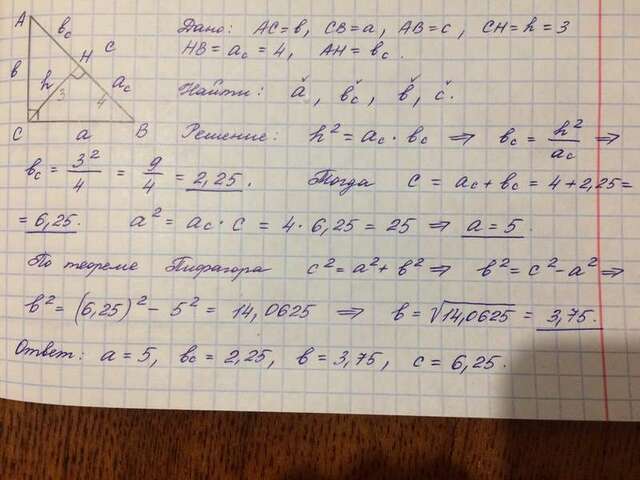 A
b
bc
C
h
3
H
c
a
4
ac
B
Дано: AC=b, CB=a, AB=c, CH=h=3
HB=ac=4, AH=bc.
Найти: a, bc, b, c.
Решение: h²=ac·bc ⇒ bc = h²/ac ⇒
bc = 3²/4 = 9/4 = 2,25. Тогда c = ac+bc = 4+2,25=
=6,25. a²=ac·c = 4·6,25=25 ⇒ a=5.
По теореме Пифагора c²=a²+b² ⇒ b²=c²-a² ⇒
b²=(6,25)²-5²=14,0625 ⇒ b=√14,0625 = 3,75.
Ответ: a=5, bc=2,25, b=3,75, c=6,25.